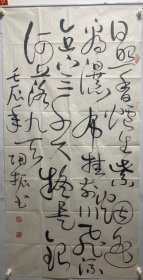 日照香炉生紫烟遥
看瀑布挂前川飞流
直下三千尺疑是银
河落九天
壬辰年 书